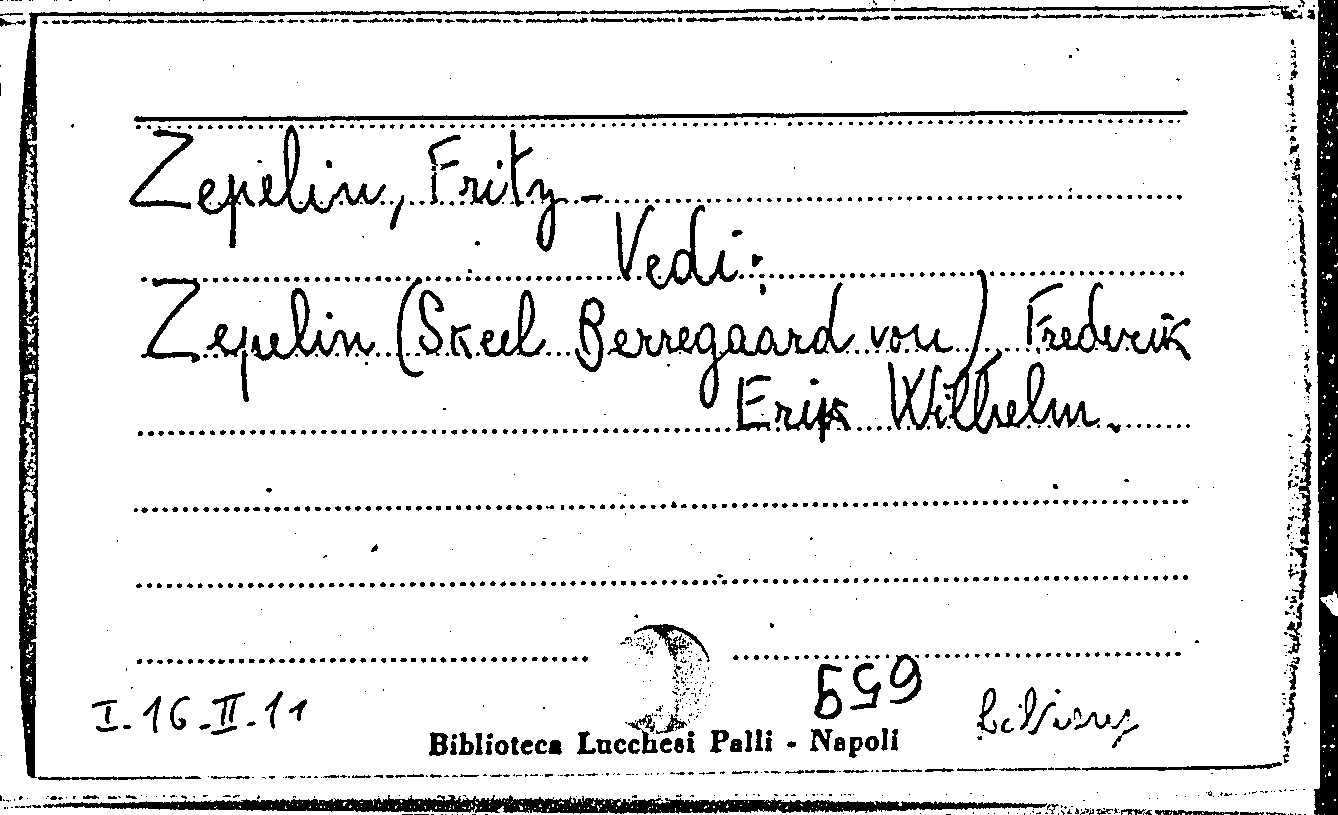 Zepelin, Fritz -
Vedi:
Zepelin (Skeel Berregaard von) Frederik
Erik Wilhelm.
I-16-II-11
659
Biblioteca Lucchesi Palli - Napoli